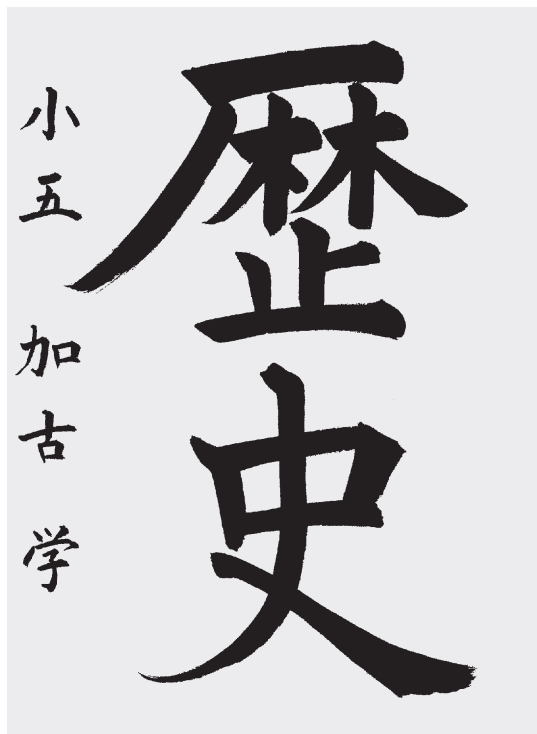 歴史
小五　加古　学